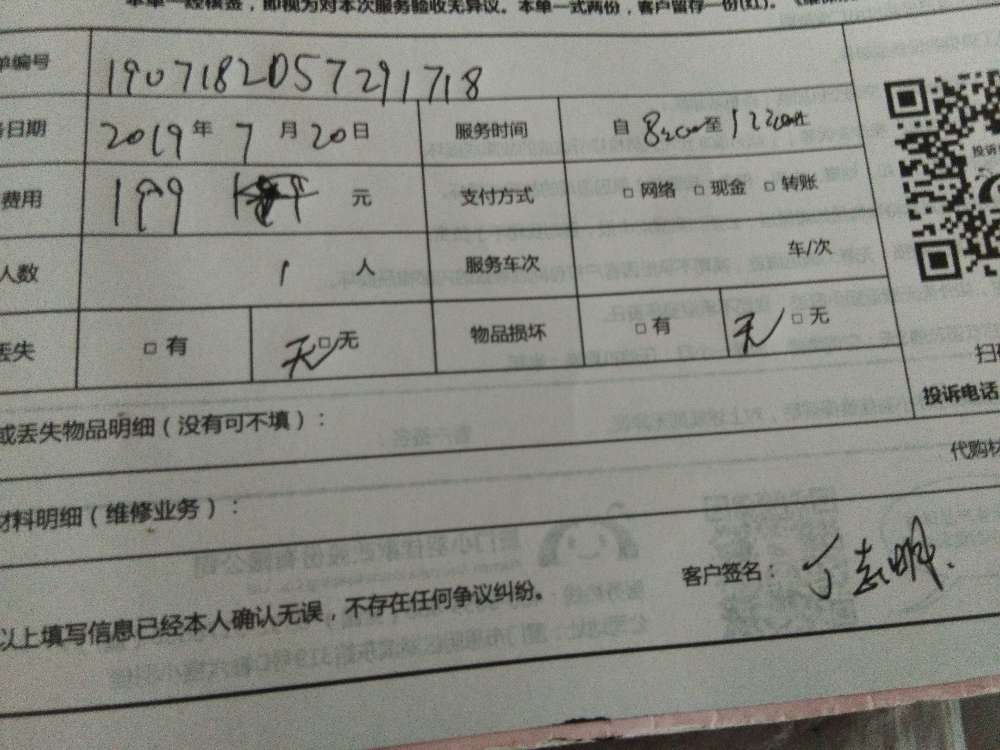 本单一经核签，即视为对本次服务验收无异议。本单一式两份，客户留存一份(红)。
单编号 190718205729171​8
日期 2019 年 7 月 20 日 服务时间 自 8:00 至 12:00
费用 199 元 支付方式 □ 网络 □ 现金 □ 转账
人数 1 人 服务车次 车/次
丢失 □ 有 无 □ 无 物品损坏 □ 有 无 □ 无
投诉电话
或丢失物品明细（没有可不填）：
代购材
材料明细（维修业务）：
客户签名： 丁志明
以上填写信息已经本人确认无误，不存在任何争议纠纷。